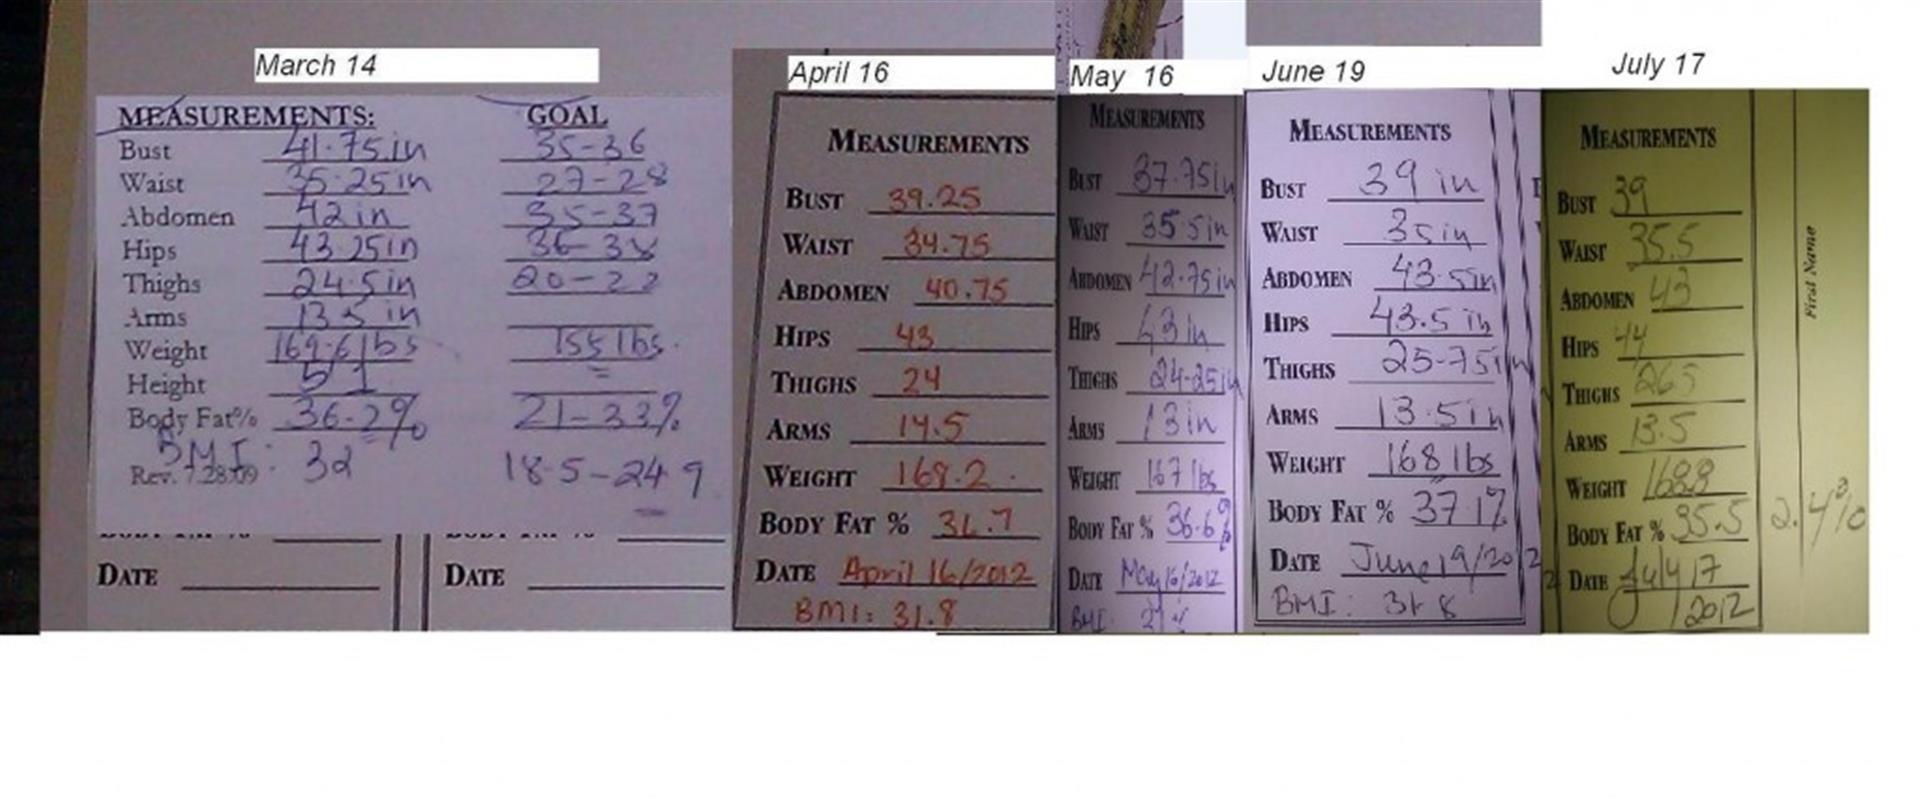 March 14
MEASUREMENTS: GOAL
Bust 41.75in 35-36
Waist 35.25in 27-28
Abdomen 42in 35-37
Hips 43.25in 36-38
Thighs 24.5in 20-22
Arms 13.5 in
Weight 169.6lbs 155 lbs.
Height 5'1
Body Fat% 36.2% 21-33%
BMI: 32 18.5-24.9
Rev. 7.28.09
DATE DATE
April 16
MEASUREMENTS
BUST 39.25
WAIST 34.75
ABDOMEN 40.75
HIPS 43
THIGHS 24
ARMS 14.5
WEIGHT 168.2
BODY FAT %
DATE April 16/2012
BMI: 31.8
May 16
MEASUREMENTS
BUST 37.75in
WAIST 35.5in
ABDOMEN 42.75in
HIPS 43in
THIGHS 24.25in
ARMS 13in
WEIGHT 167 lbs
BODY FAT % 36.6%
DATE May 16/2012
BMI:
June 19
MEASUREMENTS
BUST 39 in
WAIST 35in
ABDOMEN 43.5in
HIPS 43.5 in
THIGHS 25.75in
ARMS 13.5in
WEIGHT 168 lbs
BODY FAT % 37.1%
DATE June 19/2012
BMI: 31.8
July 17
MEASUREMENTS
BUST 39
WAIST 35.5
ABDOMEN 43
HIPS 44
THIGHS 26.5
ARMS 13.5
WEIGHT 168.8
BODY FAT % 35.5 2.4%
DATE July 17
2012
First Name